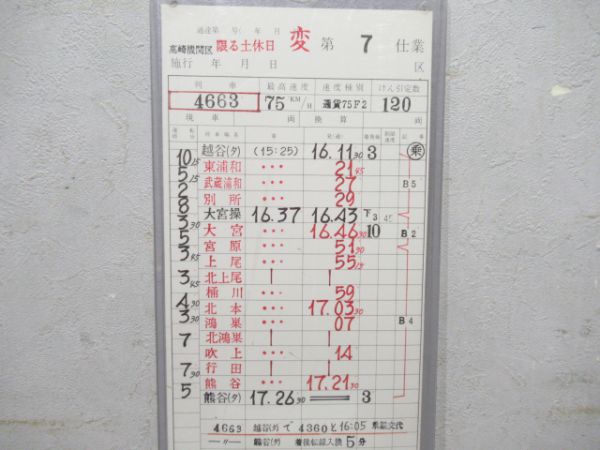 達第 号( 年 月
高崎機関区 限る土休日 変 第 7 仕業
施行 年 月 日 区
列車 最高速度 速度種別 けん引定数
4663 75 KM/H 通貨75F2 120
現車 両 換算 両
着 発(通) 着発線 制限速度 記事
10 15 越谷(タ) (15:25) 16.11 30 3 乗
5 15 東浦和 ・・・ 21 45
2 武蔵浦和 ・・・ 27 B5
8 別所 ・・・ 29
3 30 大宮操 16.37 16.43 下3 45
5 大宮 ・・・ 16.46 30 10 B2
3 45 宮原 ・・・ 51 30
上尾 ・・・ 55 15
3 45 北上尾 | |
桶川 ・・・ 59
4 30 北本 ・・・ 17.03 30
3 30 鴻巣 ・・・ 07 B4
7 北鴻巣 | |
吹上 ・・・ 14
7 30 行田 | |
5 熊谷 ・・・ 17.21 30
熊谷(タ) 17.26 30 3
4663 越谷(タ)で4360と16:05 乗組交代
〃 熊谷(タ) 着後転線入換 5分